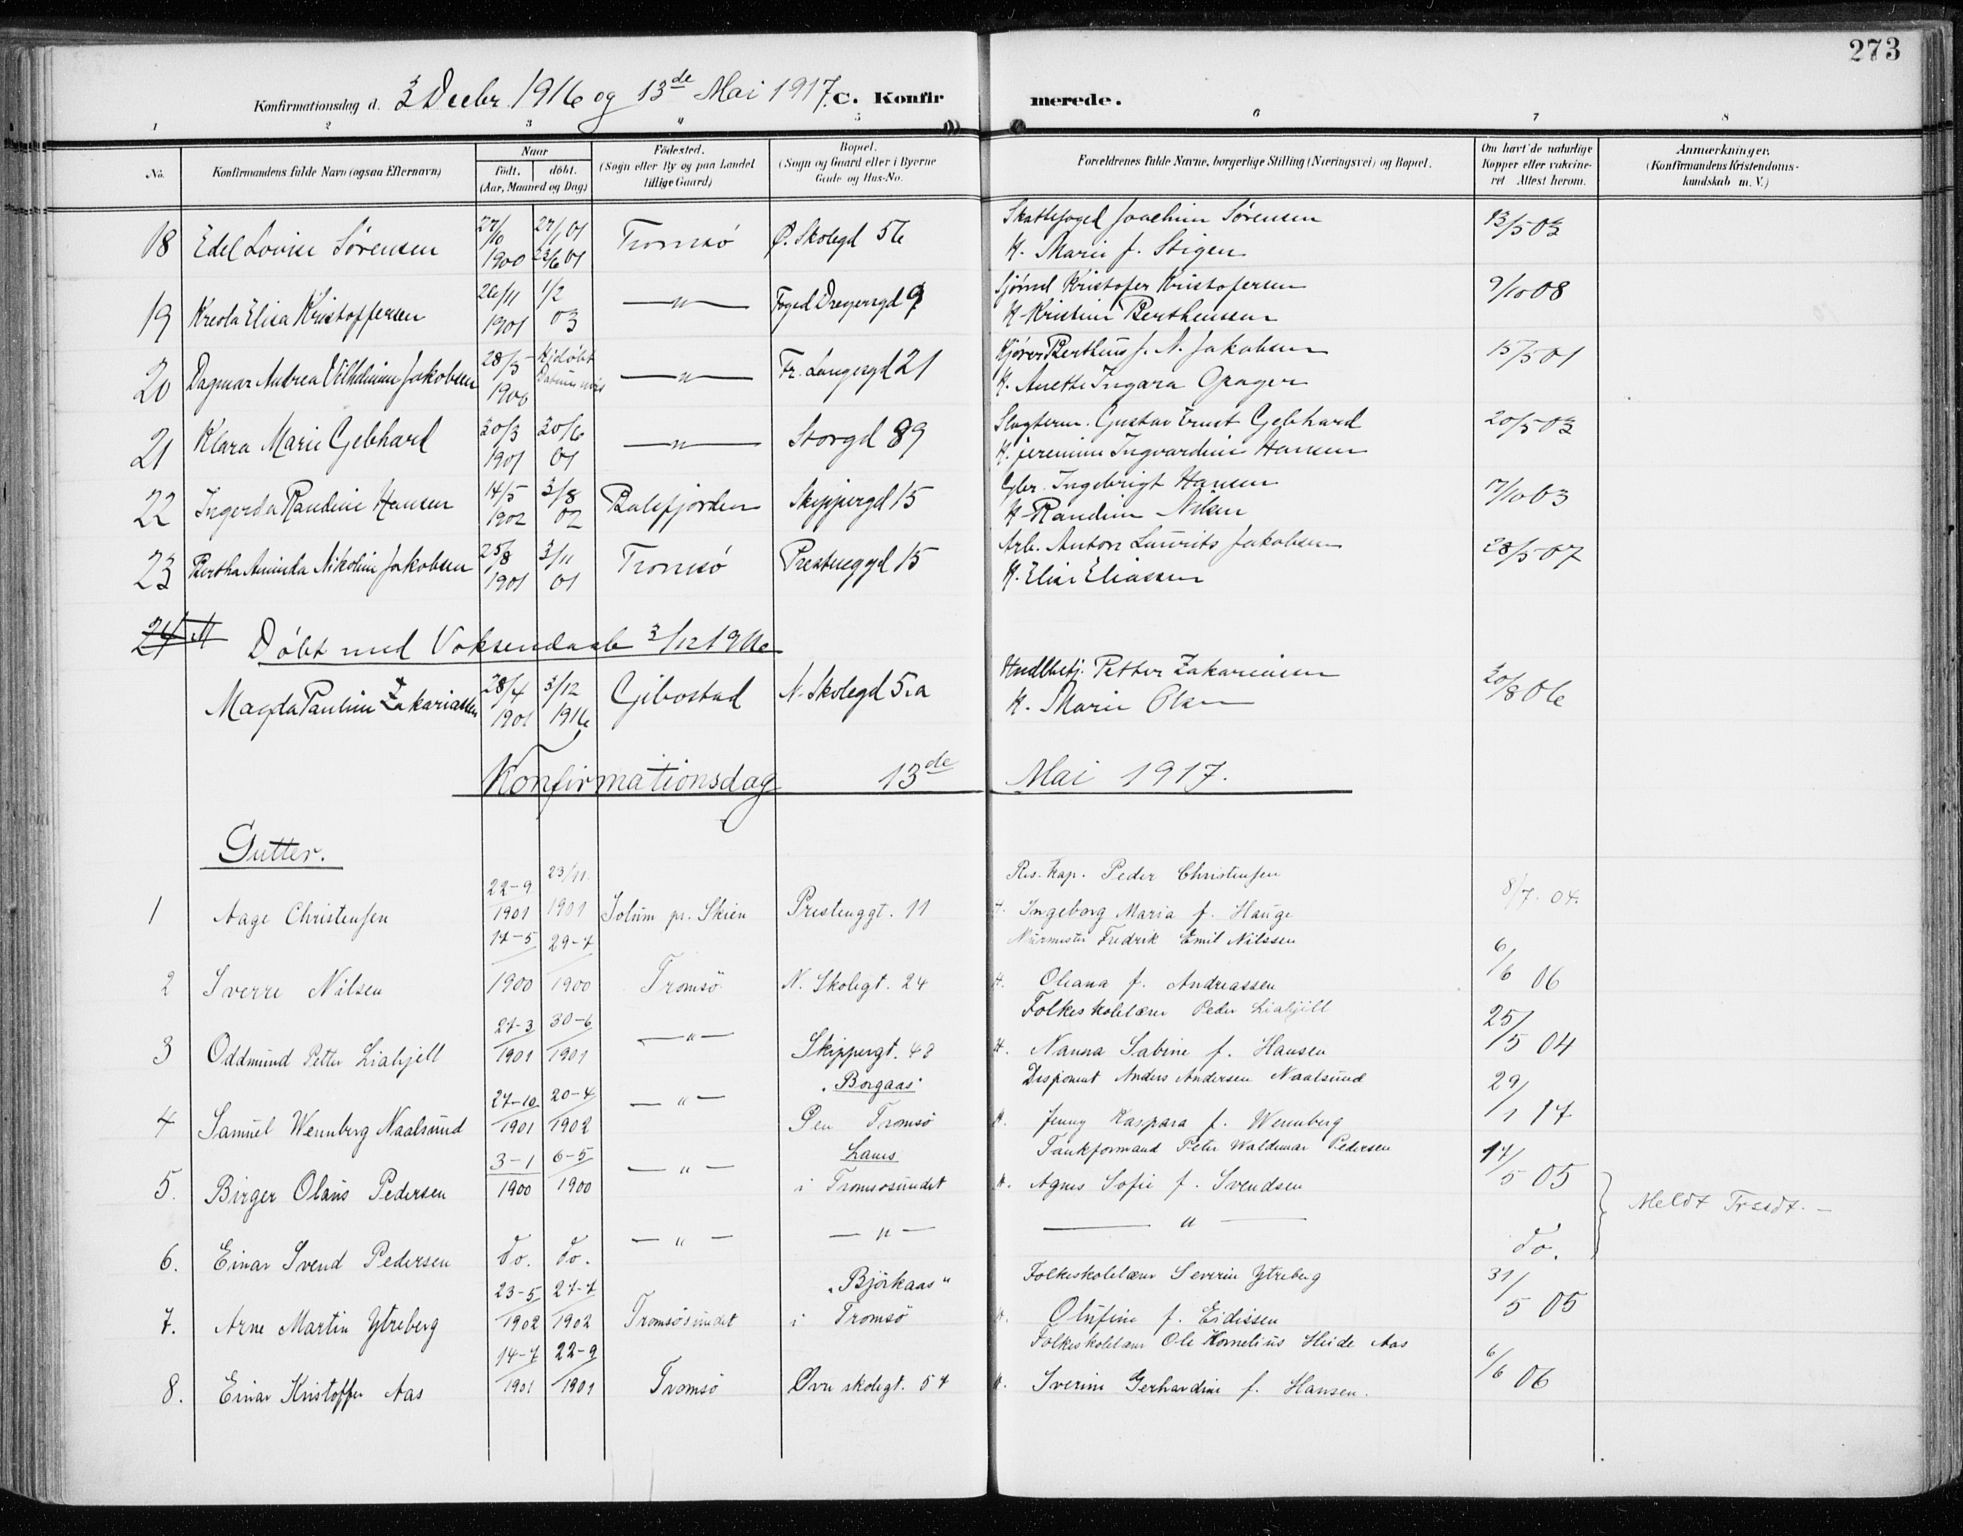 273
Konfirmationsdag d. 3 Decbr. 1916 og 13de Mai 1917. C. Konfir merede.
1 2 3 " 5 6 7 8
No. Konfirmandens fulde Navn (ogsaa Efternavn) Naar født. døbt. (Aar, Maaned og Dag) Fødested. (Sogn eller By og paa Landet tillige Gaard) Bopæl. (Sogn og Gaard eller i Byerne Gade og Hus-No. Forældrenes fulde Navne, borgerlige Stilling (Næringsvei) og Bopæl. Om havt de naturlige Kopper eller vakcineret. Attest herom. Anmærkninger. (Konfirmandens Kristendomskundskab m. V.)
27/10 27/1 01 Skattefoged Joachim Sørensen 13/5 03
18 Edel Lovise Sørensen 1900 23/6 01 Tromsø Ø. Skolegd 56 H. Marie f. Stigen
26/11 1/2 Sjømd Kristofer Kristofersen 9/10 08
19 Kreola Elisa Kristoffersen 1901 03 — " — Foged Dreyersgd 9 H. Kristine Bertheussen
28/5 Hjdøbt Kjører Bertheus J. N. Jakobsen 15/5 01
20 Dagmar Andrea Vilhelmine Jakobsen 1900 Datum — " — Fr. Langesgd 21 H. Anette Ingara
20/3 20/6 Slagterm. Gustav Ernst Gebhard 20/5 03
21 Klara Marie Gebhard 1901 01 — " — Storgd 89 H. Ingvardine Hansen
14/5 3/8 Gbr. Ingebrigt Hansen 7/10 03
22 Ingerda Randine Hansen 1902 02 Balsfjorden Skippergd 15 H. Randine Nilsen
25/8 3/11 Arb. Anton Laurits Jakobsen 28/5 07
23 Bertha Aminda Nikoline Jakobsen 1901 01 Tromsø Prestenggd 15 H. Elise Eliassen
24 Døbt med Voksendaab 3/12 1916
28/4 3/12 Handlbetj. Petter Zakariassen 20/8 06
Magda Pauline Zakariassen 1901 1916 Gibostad N. Skolegd 5.a H. Marie Olsen
Konfirmationsdag 13de Mai 1917.
Gutter.
22-9 23/11 Res. Kap. Peder Christensen 8/7. 04.
1 Aage Christensen 1901 1901 Solum pr. Skien Prestenggt. 11 H. Ingeborg Maria f. Hauge
17-5 29-7 Murmester Fredrik Emil Nilssen 6/6 06
2 Sverre Nilsen 1900 1900 Tromsö N. Skolegt. 24 H. Oliana f. Andreassen
27-3 30-6 Folkeskolelærer Peder Liahjell 25/5 04
3 Oddmund Petter Liahjell 1901 1901 — " — Skippergt. 48 H. Nanna Sabine f. Hansen
27-10 20-4 "Borgaas" Disponent Anders Andersen Naalsund 29/1 17
4 Samuel Wennberg Naalsund 1901 1902 — " — Pen Tromsö H. Jenny Kaspara f. Wennberg
3-1 6-5 Lanes Tankformand Peter Waldemar Pedersen 17/5 05
5. Birger Olaus Pedersen 1900 1900 — " — i Tromsøsundet H. Agnes Sofie f. Svendsen
Meldt Trsdt. —
6. Einar Svend Pedersen Do. Do. — " — — " — — " — Do.
23-5 27-7 "Björkaas" Folkeskolelærer Severin Ytreberg 31/5 05
7. Arne Martin Ytreberg 1902 1902 Tromsösundet i Tromsö H. Olufine f. Eidissen
14-7 22-9 Folkeskolelærer Ole Kornelius Heide Aas 6/6 06
8. Einar Kristoffer Aas 1901 1901 Tromsö Øvre skolegt. 54 H. Sverine Gerhardine f. Hansen.